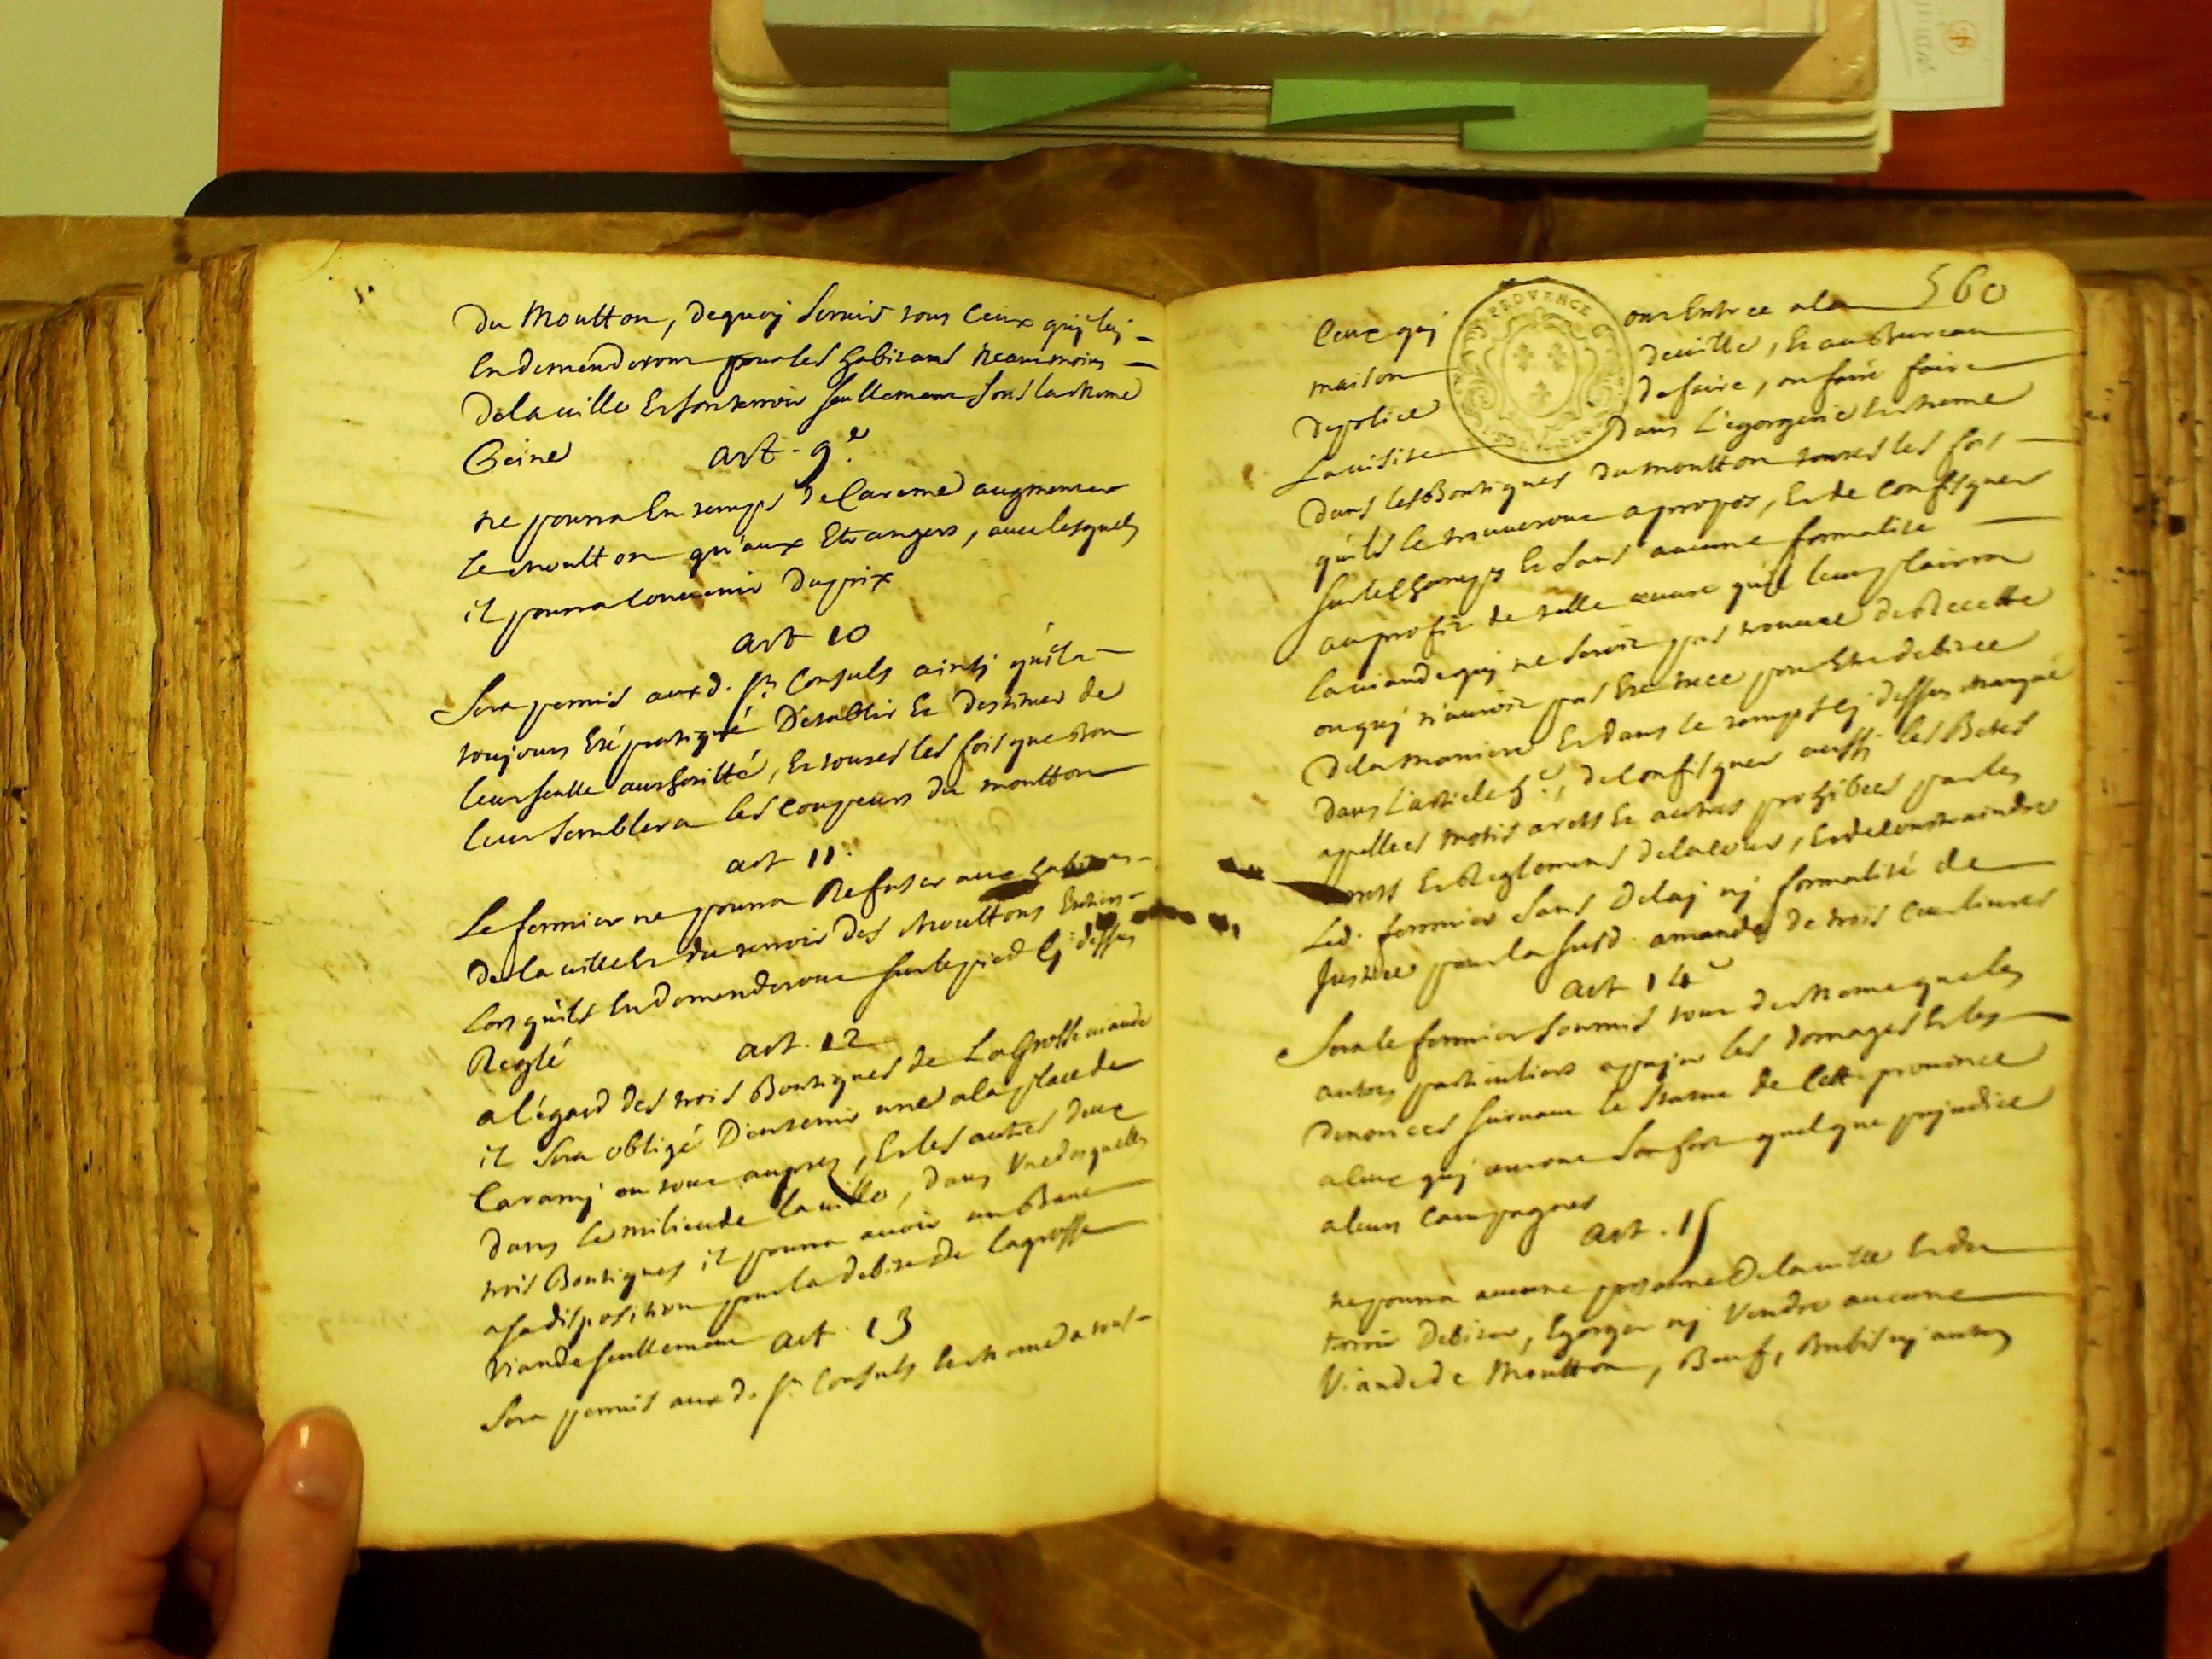 du Moutton, dequoy servir tous ceux quj luj
En demenderont pour les habitans neanmoins
dela ville Et son terroir seullement sous la meme
Peine
art. 9.e
ne pourra En temps de Careme augmenter
le moutton qu'aux Etrangers, avec lesquels
il pourra convenir du prix
art 10
Sera permis aux d. srs Consuls ainsj qu'il a
toujours Eté pratiqué D'etablir Et destituer de
leur seulle authoritté, Et toutes les fois que bon
leur semblera les coupeurs du moutton
art 11.
Le fermier ne pourra Refuser aux habitans
de la ville Et du terroir des Mouttons Entiers
Lors qu'ils En demenderont sur le pied Cj dessus
Reglé
art. 12
a l'égard des trois Boutiques de La Grosse viande
il sera obligé D'en tenir une a la place de
Caramj ou tout aupres, Et les autres deux
dans le milieu de la ville, dans Une desquelles
trois Boutiques il pourra avoir un Banc
a sa disposition pour la debite de la grosse
viande seullement art. 13
Sera permis aux d. srs Consuls Et meme a tous
560
Ceux quj ont Entree a la
maison de ville, Et au Bureau
de police de faire, ou faire faire
La visite dans L'egorgerie Et meme
dans les Boutiques du moutton toutes les fois
qu'ils le trouveront a propos, Et de confisquer
sur le champs Et sans aucune formalité
au profit de telle œuvre qu'il leur plairra
la viande quj ne seroit pas trouvee de Recette
ou quj n'auroit pas Eté tuee pour Etre debitee
de la maniere Et dans le temps cj dessus marqué
dans L'article 5.e, de Confisquer aussj les Betes
appellees motis arets Et autres prohibees par les
arrets Et Reglemens de la cour, Et de constraindre
Led. fermier sans delaj nj formalité de
Justice pour la susd. amande de trois cent livres
art 14e
Sera le fermier soumis tout de meme que les
autres particuliers a payer les domages Et les
denonces suivant le statut de Cette province
a ceux quj auront souffert quelque prejudice
a leurs Campagnes
art. 15
ne pourra aucune personne De la ville Et du
terroir Debiter, Egorger nj Vendre aucune
Viande de Moutton, Beuf, Brebis nj autres
PROVENCE